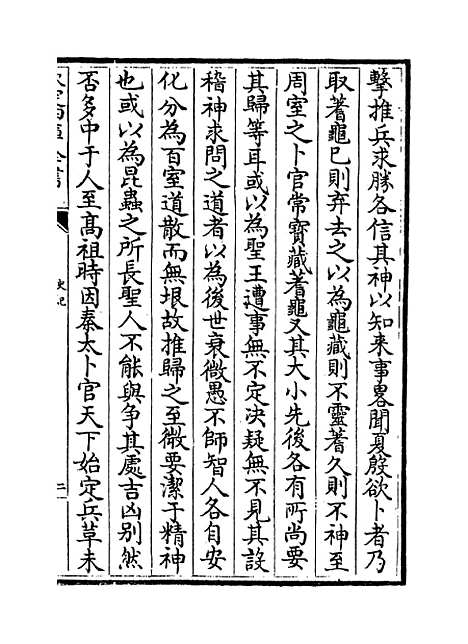 擊推兵求勝各信其神以知来事畧聞夏殷欲卜者乃
取蓍龜已則弃去之以為龜藏則不靈蓍久則不神至
周室之卜官常寶藏蓍龜又其大小先後各有所尚要
其歸等耳或以為聖王遭事無不定决疑無不見其設
稽神求問之道者以為後世衰微愚不師智人各自安
化分為百室道散而無垠故推歸之至微要潔于精神
也或以為昆蟲之所長聖人不能與争其處吉凶别然
否多中于人至髙祖時因秦太卜官天下始定兵革未
史記
二